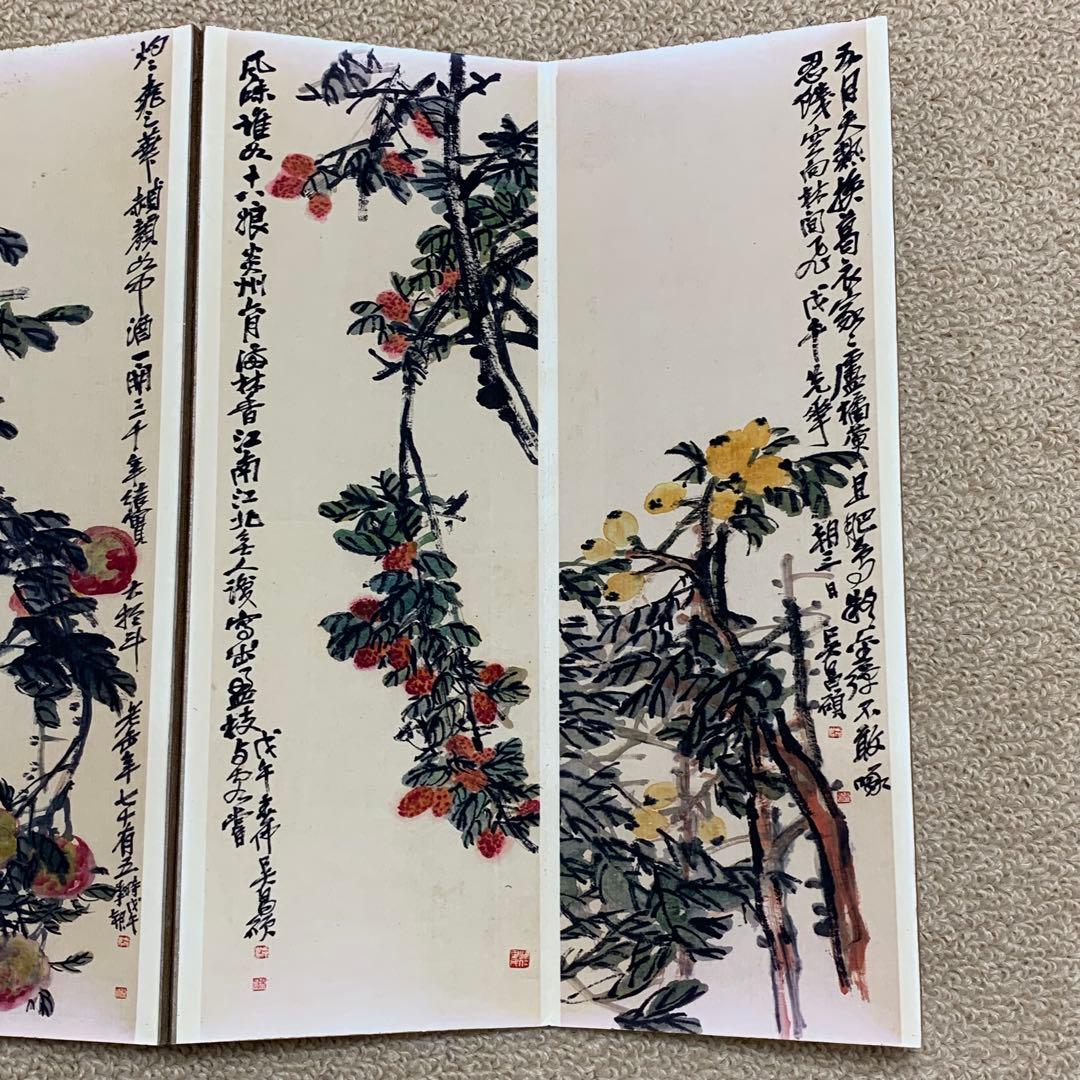 五月天熱換葛衣家家盧橘黃且肥鳥疑金彈不敢啄
忍饑空向林間飛 戊午先華
朝三日 吳昌碩
風味誰如十八娘炎州六月海林香江南江北無人復寫出枝與客嘗
戊午春仲吳昌碩
灼灼桃之華赬顏如中酒一開三千年結實大於斗 老缶年七十有五
時戊午